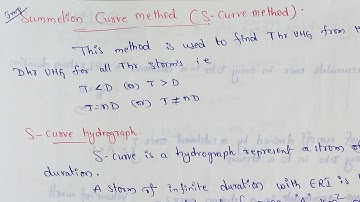 Summetion Curve method (S-curve method).
This method is used to find Thr UHG from
Dhr UHG for all Thr storms i.e
T < D (or) T > D
T = nD (or) T ≠ nD
S-curve hydrograph:
S-curve is a hydrograph represent a strom of
duration.
A storm of infinite duration with ERI is